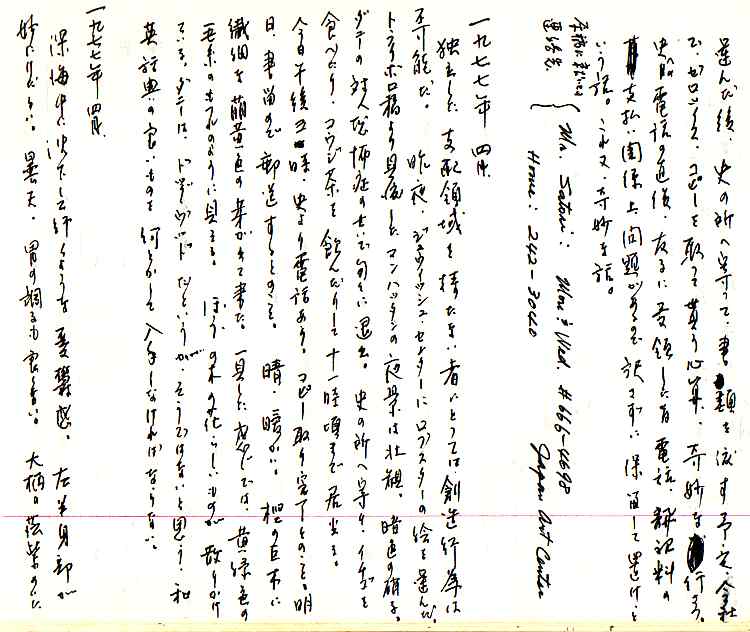 運んだ後、史の所へ寄って、書類を渡す予定。会社
で、ゼロックス、コピーを取って貰う心算。奇妙な行き
電話の直後、友子に受領した旨電話。翻訳料の
支払い関係上、問題があるので訳さずに保留して置けと
いう話。これ又、奇妙な話。
本橋に
連絡先
Mr. Satoru: Mon & Wed. #666-4698 Japan Art Center
Home: 242-3040
一九七七年 四月
独立した支配領域を持たない者にとっては創造行為は
不可能だ。 昨夜、ジュウイッシュ・センターにロブスターの絵を運んだ。
トライボロ橋より見渡したマンハッタンの夜景は壮観。暗色の硝子。
ダニーの対人恐怖症のせいで匆々に退出。史の所へ寄り、イチゴを
食べたり、コウジ茶を飲んだりして十一時頃まで居坐る。
今日午後 時、史より電話あり。コピー取り完了とのこと。明
日、書留めで郵送するとのこと。 晴、暖かい。 の巨木に
繊細な萌黄色の葉が出て来た。一見した處では、黄緑色の
毛糸のほつれのように見える。 ほうの木の花らしいものが散りかけ
ている。ダニーは、ドッグウッドだというが、そうではないと思う。和
英辞典の良いものを何とかして入手しなければならない。
一九七七年 四月
深海中に沈下して行くような憂鬱感。左半身部が
妙にけだるい。曇天。胃の調子も良くない。大柄の